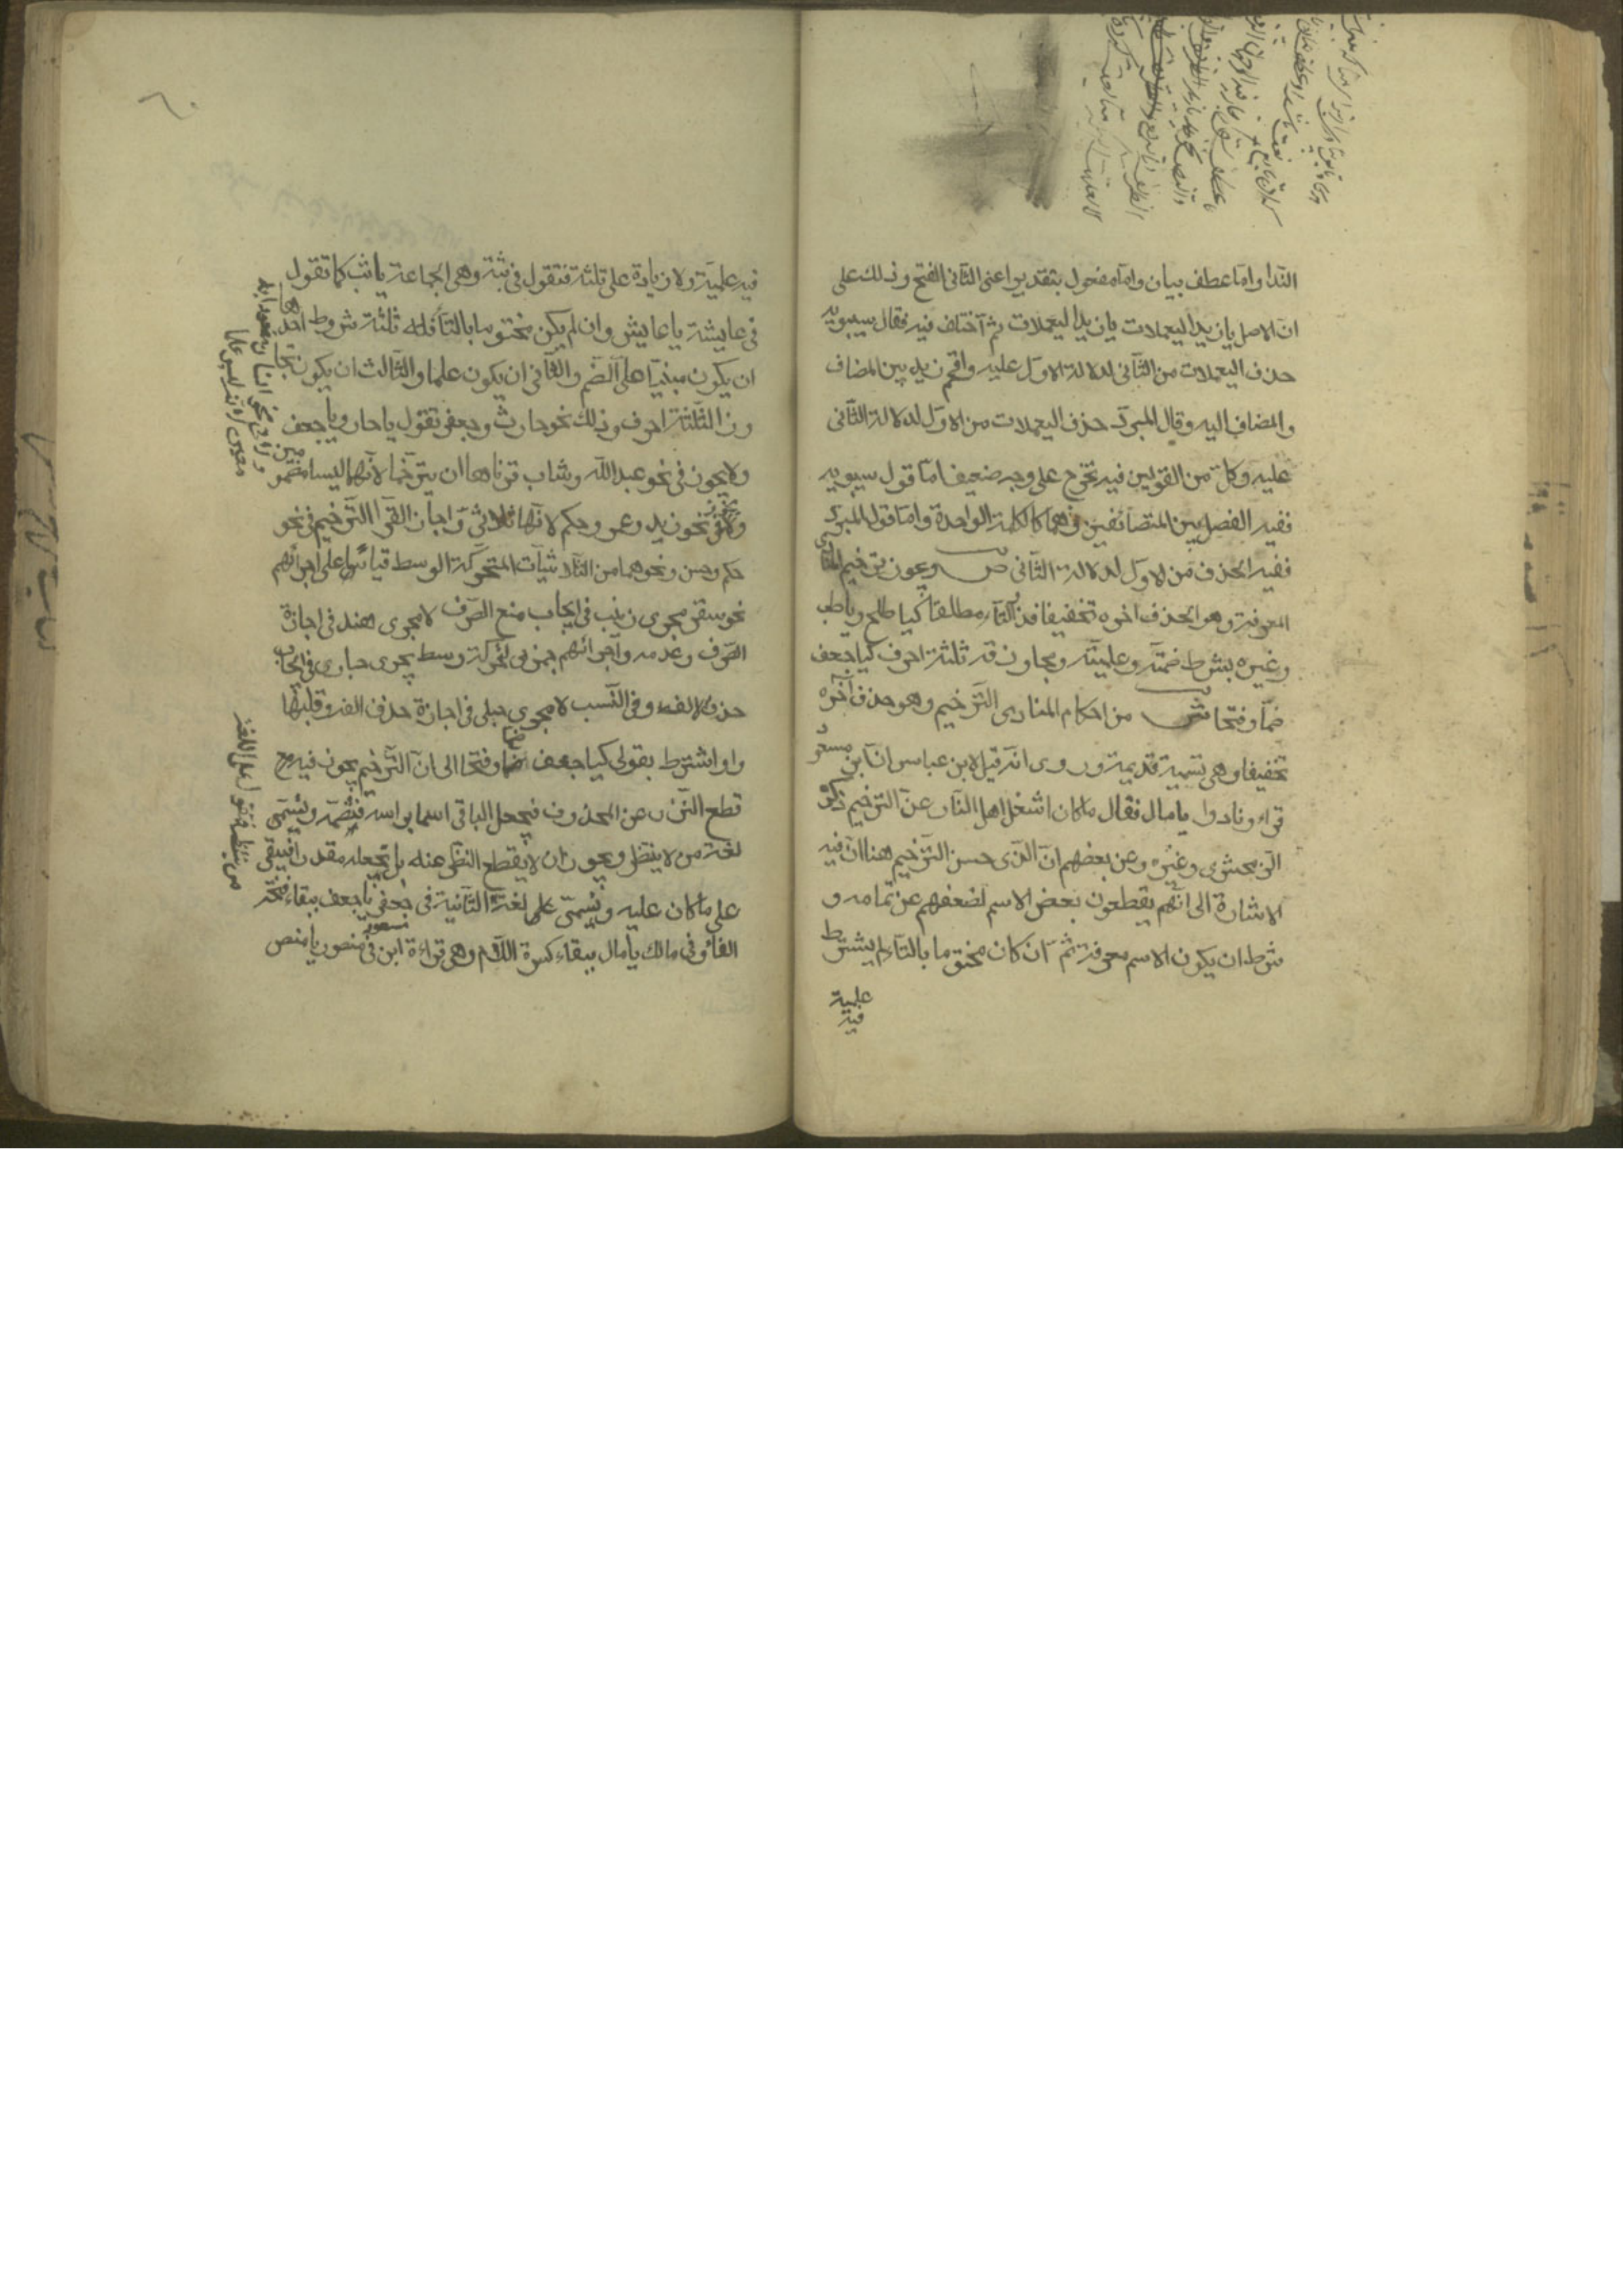 الندا واما عطف بيان واما مفعول بتقدير اعنى الثانى الفتح وذلك على
ان الاصل يا زيد اليعملات يا زيد اليعملات ثم اختلف فيه فقال سيبويه
حذف اليعملات من الثانى لدلالة الاول عليه واقحم زيد بين المضاف
والمضاف اليه وقال المبرد حذف اليعملات من الاول لدلالة الثانى
عليه وكل من القولين فيه تخرج على وجه ضعيف اما قول سيبويه
ففيه الفصل بين المتضائفين وهما كالكلمة الواحدة واما قول المبرد
ففيه الحذف من الاول لدلالة الثانى ص ويجوز ترخيم المنادى
المعرفة وهو الحذف اخره تخفيفا فذو التاء مطلقا كيا طلح ويا طب
وغيره بشرط ضمه وعلميته ومجاوزته ثلثة احرف كيا جعف
ضما وفتحا ش من احكام المنادى الترخيم وهو حذف آخره
تخفيفا وهى تسمية قديمة وروى انه قيل لابن عباس ان ابن مسعود
قراء ونادوا يا مال فقال ما كان اشغل اهل النار عن الترخيم ذكره
الزمخشرى وغيره وعن بعضهم ان الذى حسن الترخيم هنا ان فيه
الاشارة الى انهم يقطعون بعض الاسم لضعفهم عن تمامه و
شرطه ان يكون الاسم معرفة ثم ان كان مختوما بالتاء لم يشترط
علمية
فيه
فيه علمية ولا زيادة على ثلثة فتقول فى ثبة وهى الجماعة يا ثب كما تقول
فى عايشة يا عايش وان لم يكن مختوما بالتاء فله ثلثة شروط احدها
ان يكون مبنيا على الضم والثانى ان يكون علما والثالث ان يكون متجا
وز الثلثة احرف وذلك نحو حارث وجعفر تقول يا حار ويا جعف
ولا يجوز فى نحو عبد الله وشاب قرناها ان يترخما لانهما ليسا مضمو
مين
ولا فى نحو زيد وعمرو وحكم لانها ثلاثى واجاز الفرا الترخيم فى نحو
حكم وحسن ونحوهما من الثلاثيات المتحركة الوسط قياسا على اجرائهم
نحو سقر مجرى زينب فى ايجاب منع الصرف لا مجرى هند فى اجازة
الصرف وعدمه واجرائهم جمزى لحركة وسطه مجرى حبارى فى ايجاب
حذف الالف فى النسب لا مجرى حبلى فى اجازة حذف الفه وقلبها
واوا اشترط بقولى كيا جعف ضما وفتحا الى ان الترخيم يجوز فيه
قطع النظر عن المحذوف فيجعل الباقى اسما براسه فتضمه ويسمى
لغة من لا ينتظر ويجوز ان لا يقطع النظر عنه بل يجعله مقدرا فيبقى
على ما كان عليه ويسمى على لغة الثانية فى جعفر يا جعف ببقاء فتحة
الفاء وفى مالك يا مال ببقاء كسرة اللام وهى قراءة ابن مسعود فى منصور يا منص
من ينتظر فتقول على اللغة